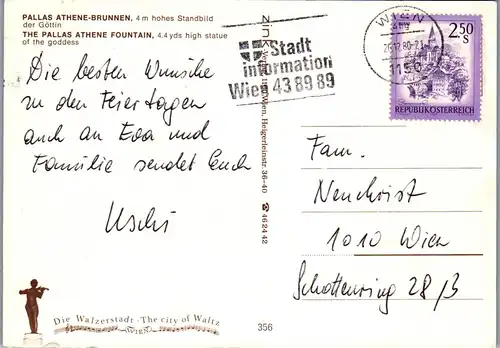 PALLAS ATHENE-BRUNNEN, 4 m hohes Standbild
der Göttin
THE PALLAS ATHENE FOUNTAIN, 4.4 yds high statue
of the goddess
Die besten Wünsche
zu den Feiertagen
auch an Eva und
Familie sendet Euch
Uschi
Die Walzerstadt · The city of Waltz
WIEN
356
Wien, Heigerleinstr. 36-40 ☎ 46 24 42
Stadt
information
Wien 43 89 89
WIEN
1150
2.50
S
REPUBLIK ÖSTERREICH
Fam.
Neuchrist
1010 Wien
Schottenring 28/3